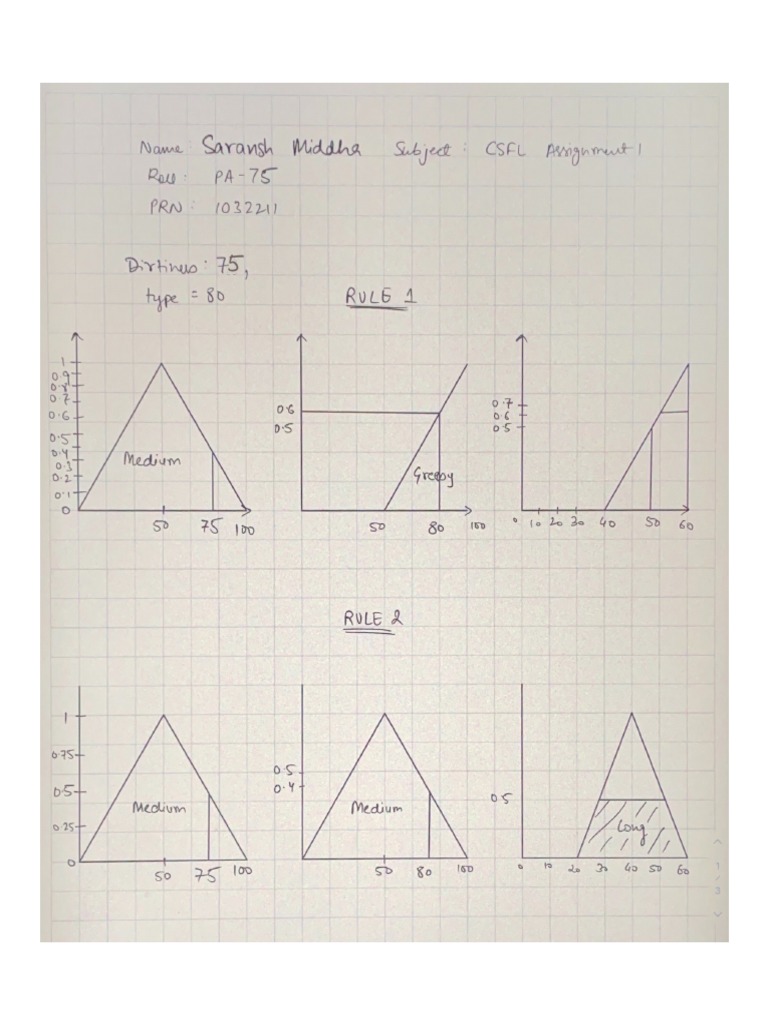 Name: Saransh Middha Subject: CSFL Assignment 1
Roll: PA-75
PRN: 1032211
Dirtiness: 75,
type = 80
RULE 1
1
0.9
0.8
0.7
0.6
0.5
0.4
0.3
0.2
0.1
0
Medium
50 75 100
0.6
0.5
Greasy
50 80 100
0.7
0.6
0.5
0 10 20 30 40 50 60
RULE 2
1
0.75
0.5
0.25
0
Medium
50 75 100
0.5
0.4
Medium
50 80 100
0.5
Long
0 10 20 30 40 50 60
1
/
3